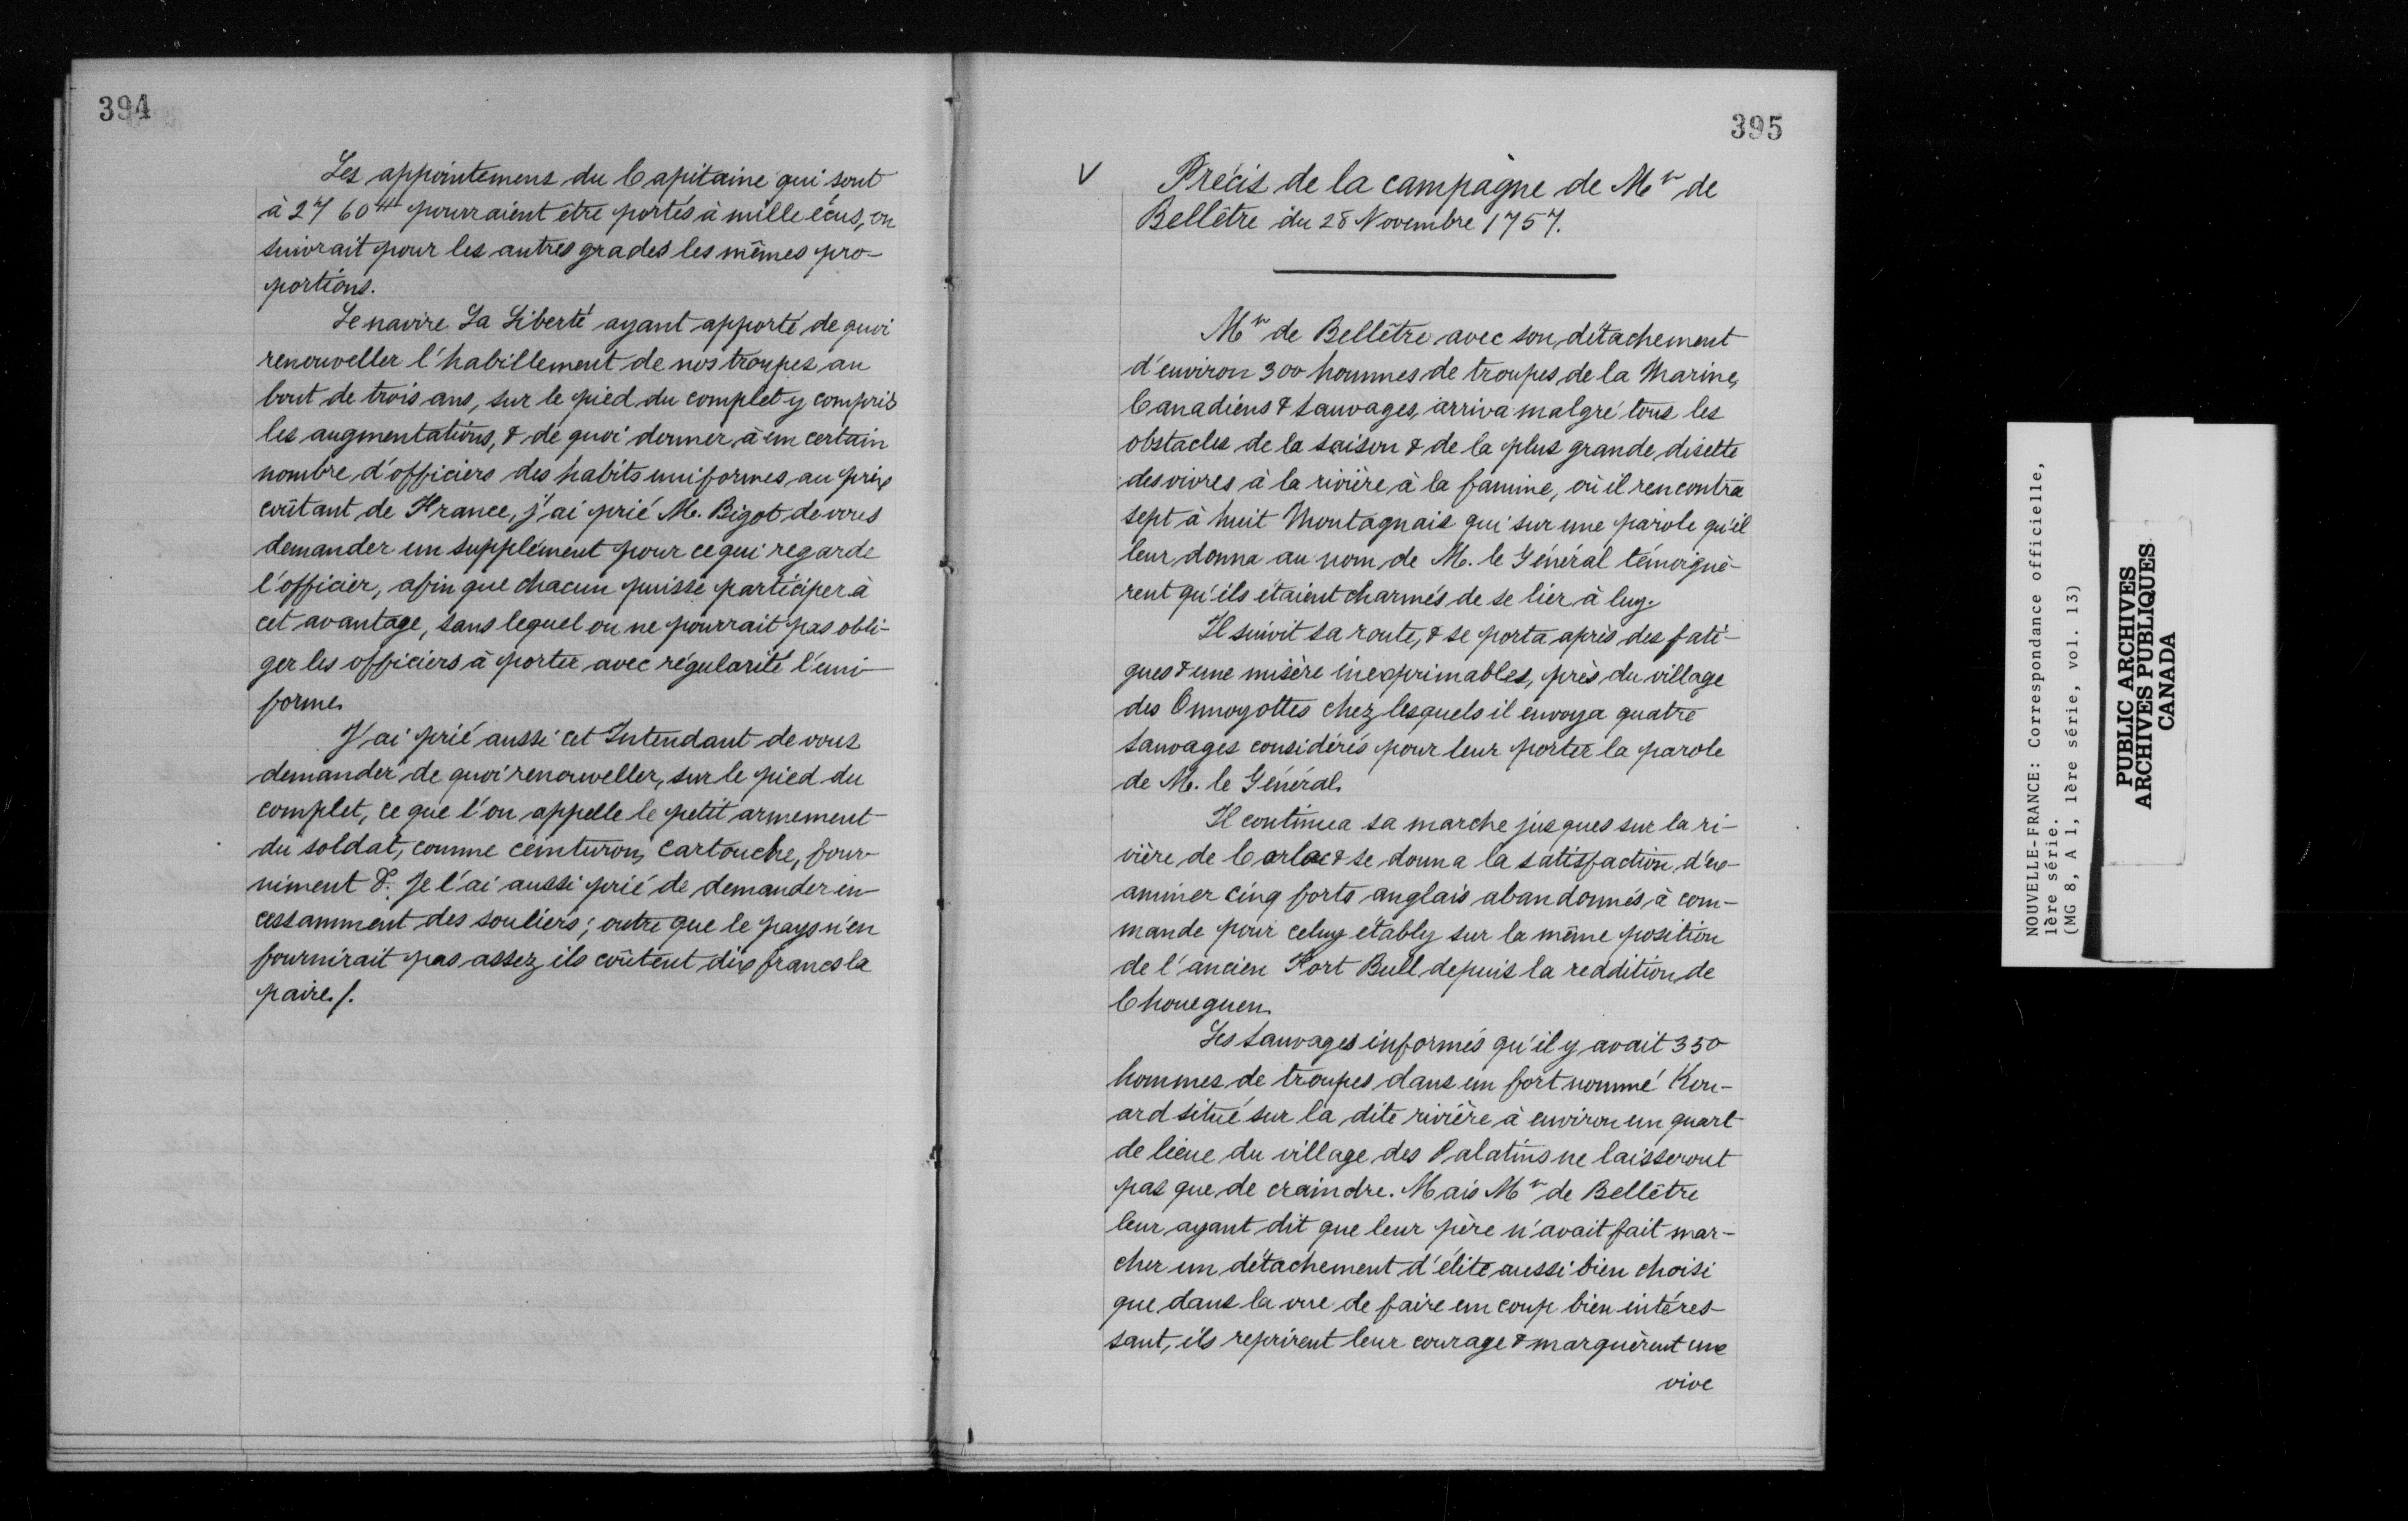 394
Les appointemens du Capitaine qui sont
à 2760# pourraient être portés à mille écus, on
suivrait pour les autres grades les mêmes pro-
portions.
Le navire La Liberté ayant apporté de quoi
renouveller l'habillement de nos troupes au
bout de trois ans, sur le pied du complet y compris
les augmentations, & de quoi donner à un certain
nombre d'officiers des habits uniformes au prix
coûtant de France, j'ai prié M. Bigot de vous
demander un supplément pour ce qui regarde
l'officier, afin que chacun puisse participer à
cet avantage, sans lequel on ne pourrait pas obli-
ger les officiers à porter avec régularité l'uni-
forme.
J'ai prié aussi cet Intendant de vous
demander de quoi renouveller, sur le pied du
complet, ce que l'on appelle le petit armement
du soldat, comme ceinturon, cartouche, four-
niment &. Je l'ai aussi prié de demander in-
cessamment des souliers; outre que le pays n'en
fournirait pas assez, ils coûtent dix francs la
paire./.
395
V Précis de la campagne de Mr de
Bellêtre du 28 Novembre 1757.
Mr de Bellêtre avec son détachement
d'environ 300 hommes de troupes de la Marine,
Canadiens & Sauvages, arriva malgré tous les
obstacles de la saison & de la plus grande disette
des vivres à la rivière à la famine, où il rencontra
sept à huit Montagnais qui sur une parole qu'il
leur donna au nom de M. le Général témoignè-
rent qu'ils étaient charmés de se lier à luy.
Il suivit sa route, & se porta après des fati-
gues & une misère inexprimables, près du village
des Onnoyottes chez lesquels il envoya quatre
sauvages considérés pour leur porter la parole
de M. le Général.
Il continua sa marche jusques sur la ri-
vière de Corlac & se donna la satisfaction d'ex-
aminer cinq forts anglais abandonnés à com-
mande pour celuy étably sur la même position
de l'ancien Fort Bull depuis la reddition de
Choueguen.
Les Sauvages informés qu'il y avait 350
hommes de troupes dans un fort nommé Kou-
ard situé sur la dite rivière à environ un quart
de lieue du village des Palatins ne laisseront
pas que de craindre. Mais Mr de Bellêtre
leur ayant dit que leur père n'avait fait mar-
cher un détachement d'élite aussi bien choisi
que dans la vue de faire un coup bien intéres-
sant, ils reprirent leur courage & marquèrent une
vive
NOUVELLE-FRANCE: Correspondance officielle,
1ère série.
(MG 8, A 1, 1ère série, vol. 13)
PUBLIC ARCHIVES
ARCHIVES PUBLIQUES
CANADA